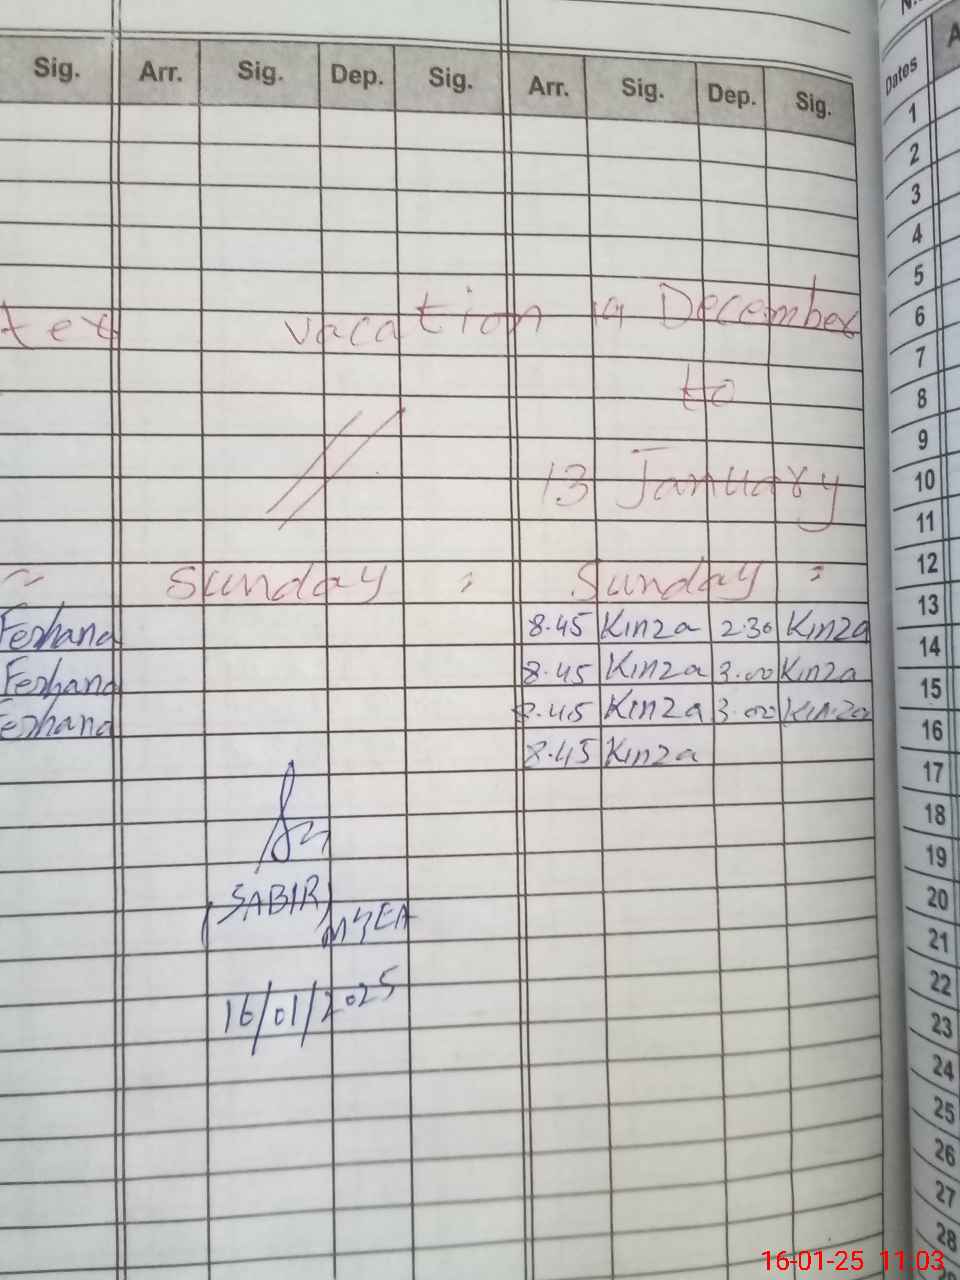 N.
Sig. Arr. Sig. Dep. Sig. Arr. Sig. Dep. Sig.
Dates A
1
2
3
4
5
ter vacation 19 December
6
7
to
8
9
13 January
10
11
~ Sunday : Sunday :
12
Ferhana 8.45 Kinza 2.30 Kinza
13
Ferhana 8.45 Kinza 3.00 Kinza
14
Ferhana 8.45 Kinza 3.00 Kinza
15
8.45 Kinza
16
17
18
19
(SABIR)
MJEA
20
21
22
16/01/2025
23
24
25
26
27
28
16-01-25 11.03